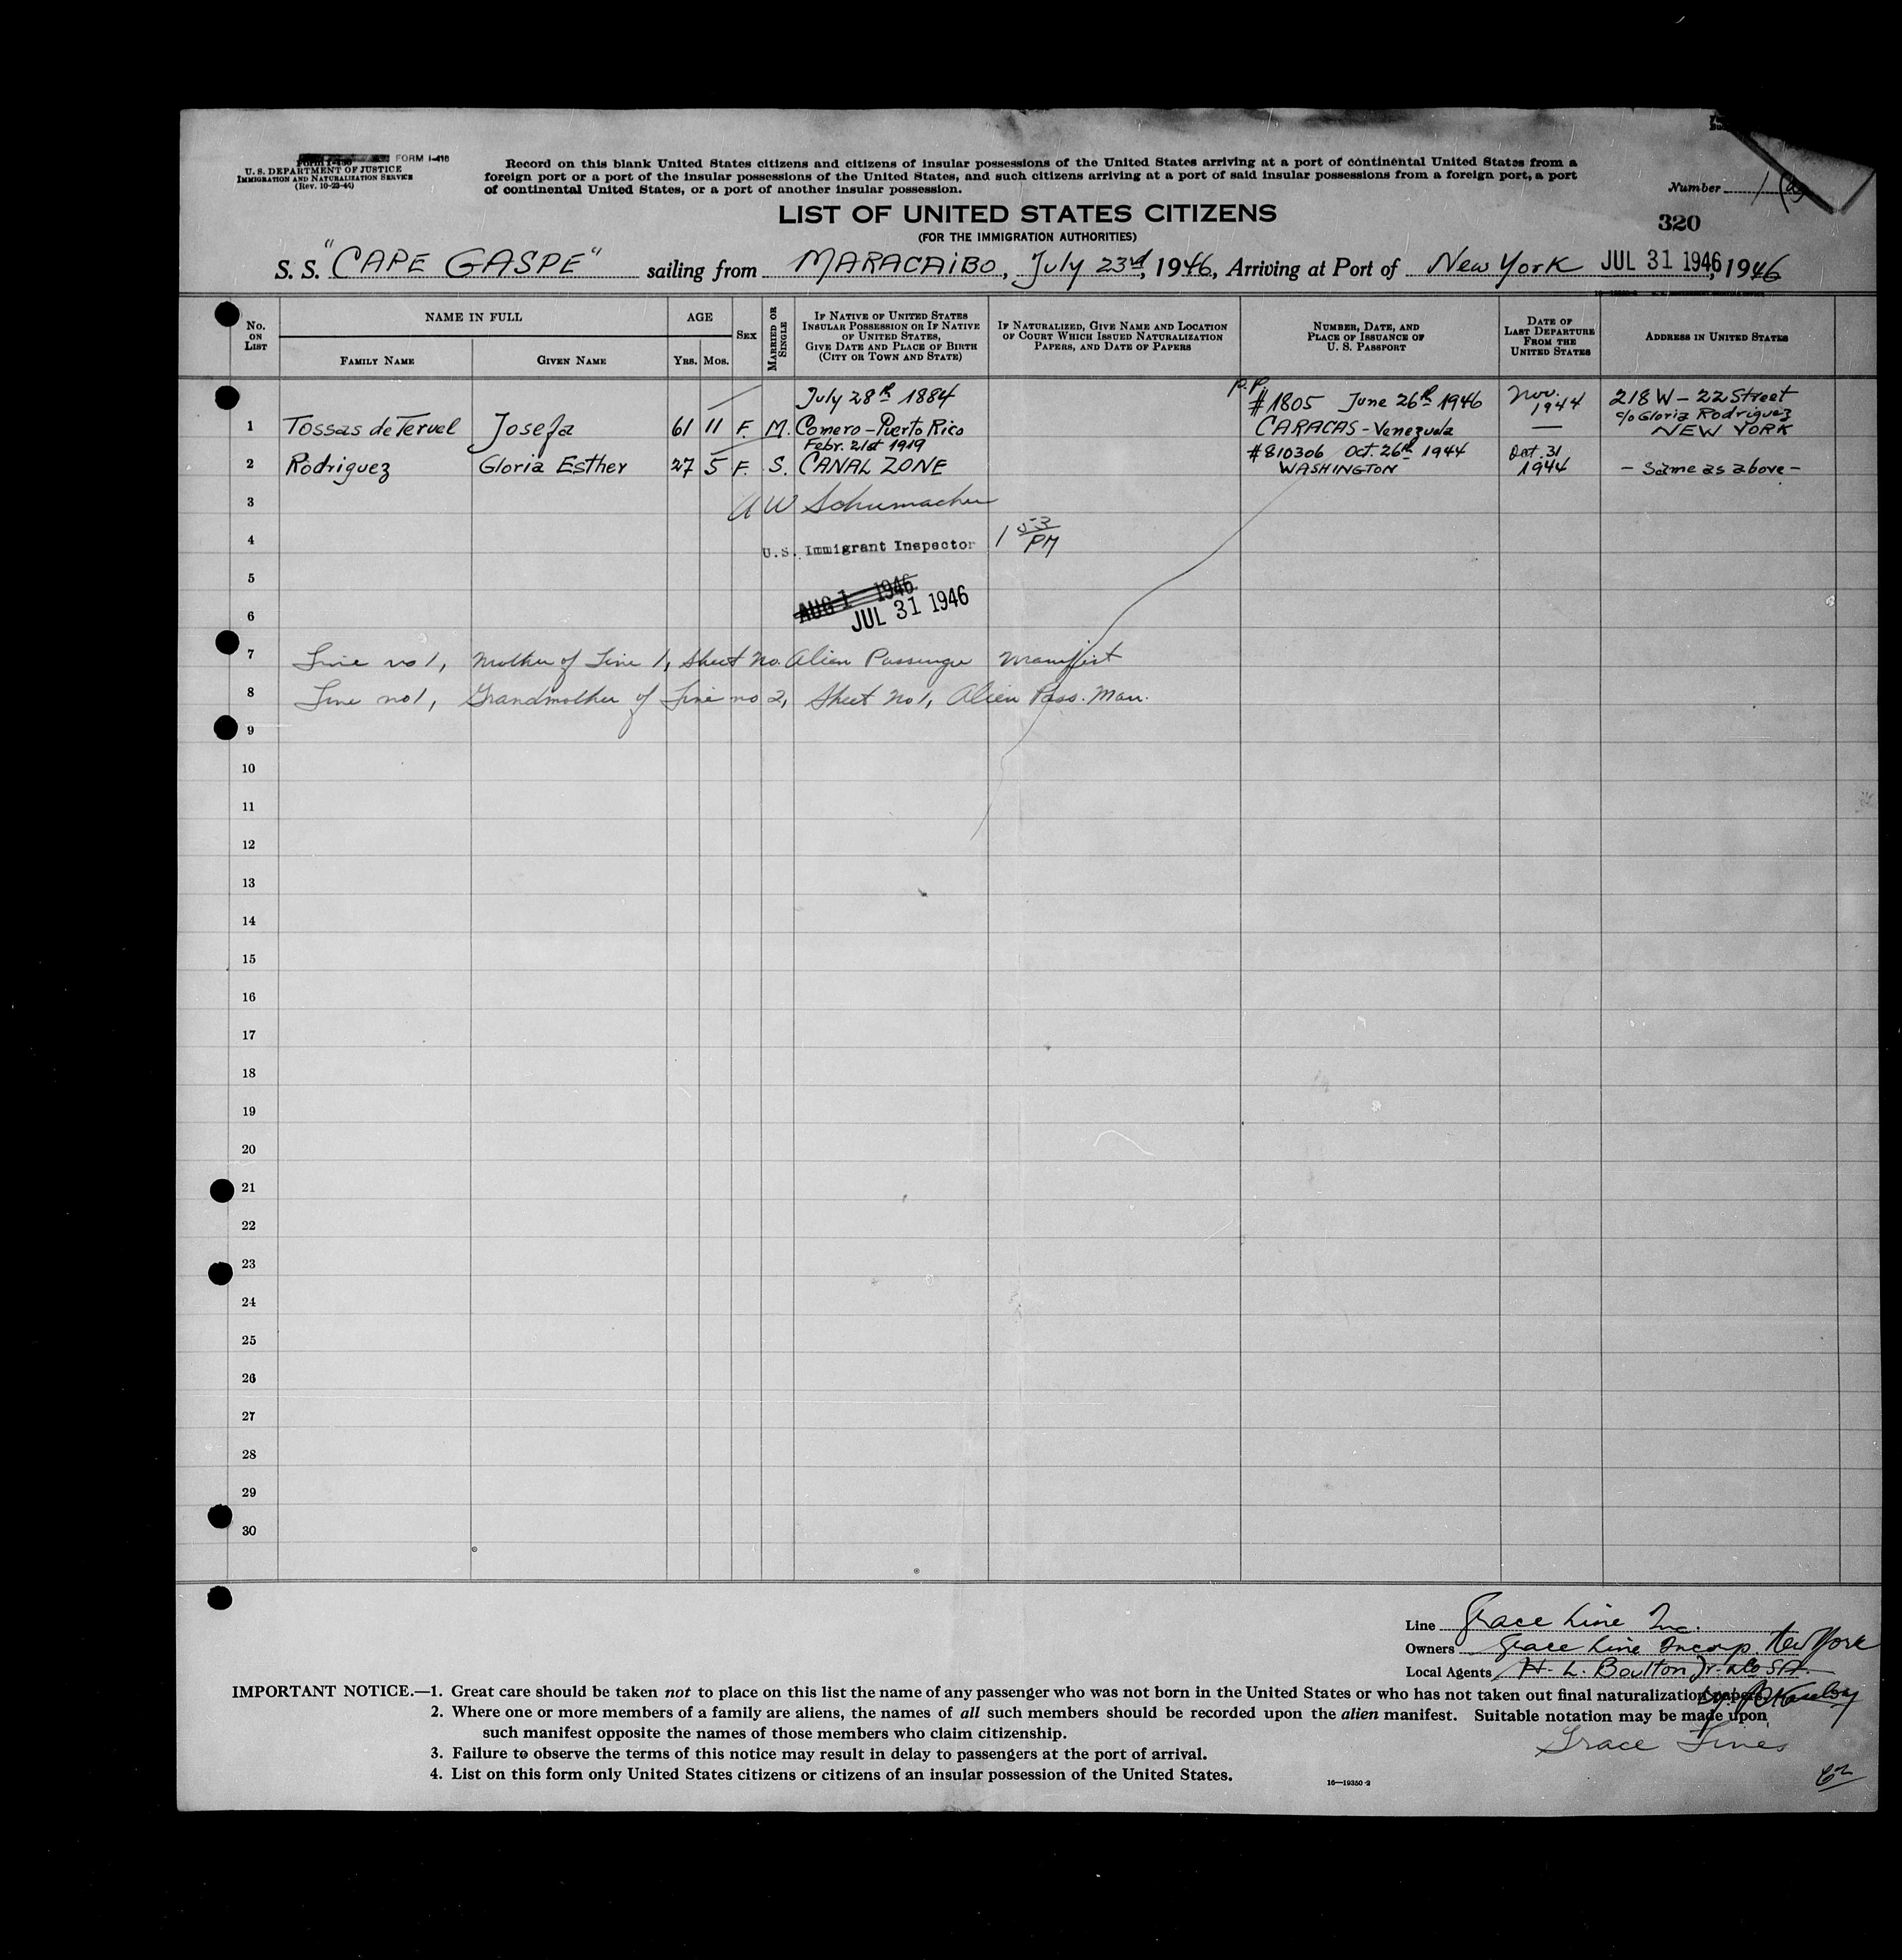 FORM I-416
U. S. DEPARTMENT OF JUSTICE
IMMIGRATION AND NATURALIZATION SERVICE
(Rev. 10-23-44)
Record on this blank United States citizens and citizens of insular possessions of the United States arriving at a port of continental United States from a
foreign port or a port of the insular possessions of the United States, and such citizens arriving at a port of said insular possessions from a foreign port, a port
of continental United States, or a port of another insular possession.
Number 1
320
LIST OF UNITED STATES CITIZENS
(FOR THE IMMIGRATION AUTHORITIES)
S. S. "CAPE GASPE" sailing from MARACAIBO, July 23rd, 1946, Arriving at Port of New York JUL 31 1946, 1946
No. ON LIST
NAME IN FULL
FAMILY NAME
GIVEN NAME
AGE
YRS. MOS.
SEX
MARRIED OR SINGLE
IF NATIVE OF UNITED STATES
INSULAR POSSESSION OR IF NATIVE
OF UNITED STATES,
GIVE DATE AND PLACE OF BIRTH
(CITY OR TOWN AND STATE)
IF NATURALIZED, GIVE NAME AND LOCATION
OF COURT WHICH ISSUED NATURALIZATION
PAPERS, AND DATE OF PAPERS
NUMBER, DATE, AND
PLACE OF ISSUANCE OF
U. S. PASSPORT
DATE OF
LAST DEPARTURE
FROM THE
UNITED STATES
ADDRESS IN UNITED STATES
July 28th 1884 P.P. #1805 June 26th 1946 Nov. 1944 218 W - 22 Street
c/o Gloria Rodriguez
1 Tossas de Teruel Josefa 61 11 F. M. Comero - Puerto Rico CARACAS - Venezuela — NEW YORK
Febr. 21st 1919 #810306 Oct. 26th 1944 Oct. 31
2 Rodriguez Gloria Esther 27 5 F. S. CANAL ZONE WASHINGTON 1944 - Same as above -
3 A W Schumacher
4 U.S. Immigrant Inspector 1 53 PM
5
AUG 1 1946
6 JUL 31 1946
7 Line no 1, Mother of Line 1, Sheet No. Alien Passenger Manifest
8 Line no 1, Grandmother of Line no 2, Sheet No 1, Alien Pass. Man.
9
10
11
12
13
14
15
16
17
18
19
20
21
22
23
24
25
26
27
28
29
30
Line Grace Line Inc.
Owners Grace Line Incorp. New York
Local Agents H. L. Boulton Jr. & Co S.A.
IMPORTANT NOTICE.—1. Great care should be taken not to place on this list the name of any passenger who was not born in the United States or who has not taken out final naturalization papers.
2. Where one or more members of a family are aliens, the names of all such members should be recorded upon the alien manifest. Suitable notation may be made upon
such manifest opposite the names of those members who claim citizenship.
Grace Lines
3. Failure to observe the terms of this notice may result in delay to passengers at the port of arrival.
4. List on this form only United States citizens or citizens of an insular possession of the United States.
16—19350-2